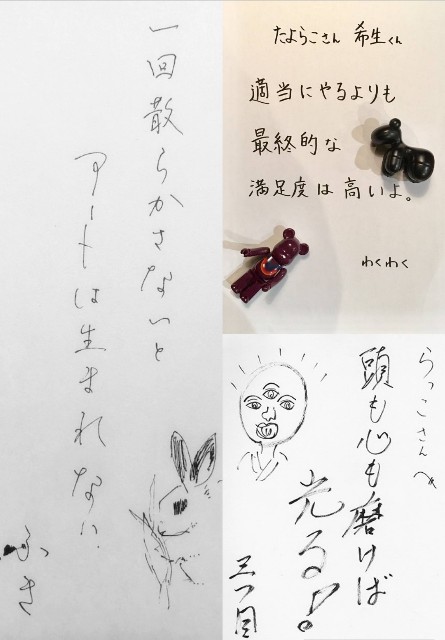 一回散らかさないと
アートは生まれない
ふき
たよらこさん 希生くん
適当にやるよりも
最終的な
満足度は高いよ。
わくわく
らっこさんへ
頭も心も磨けば
光る!
三つ目